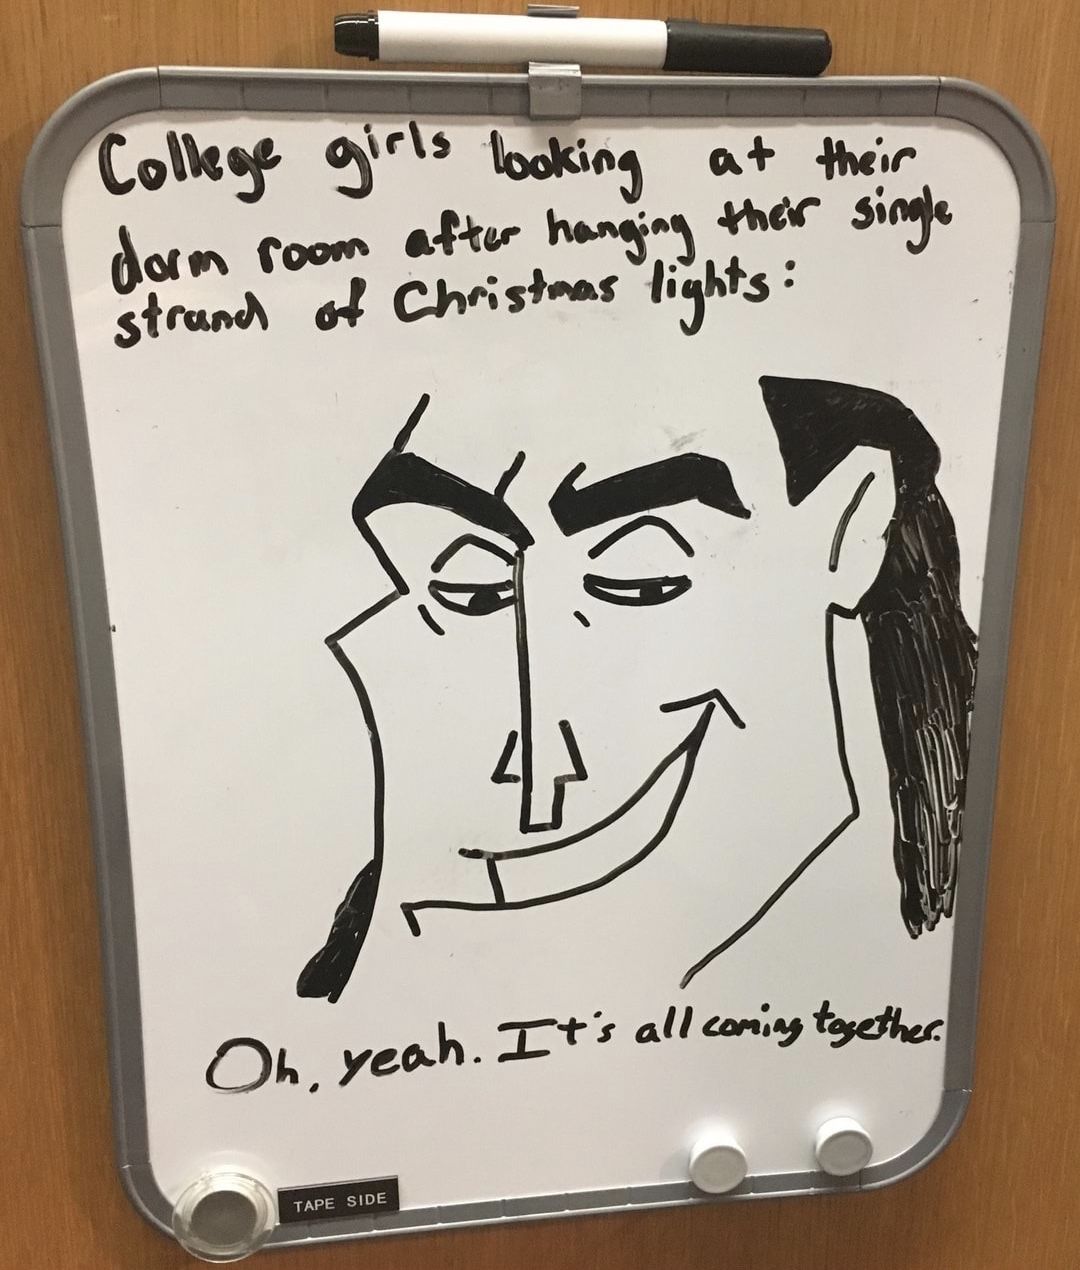 College girls looking at their
dorm room after hanging their single
strand of Christmas lights:
Oh, yeah. It's all coming together.
TAPE SIDE